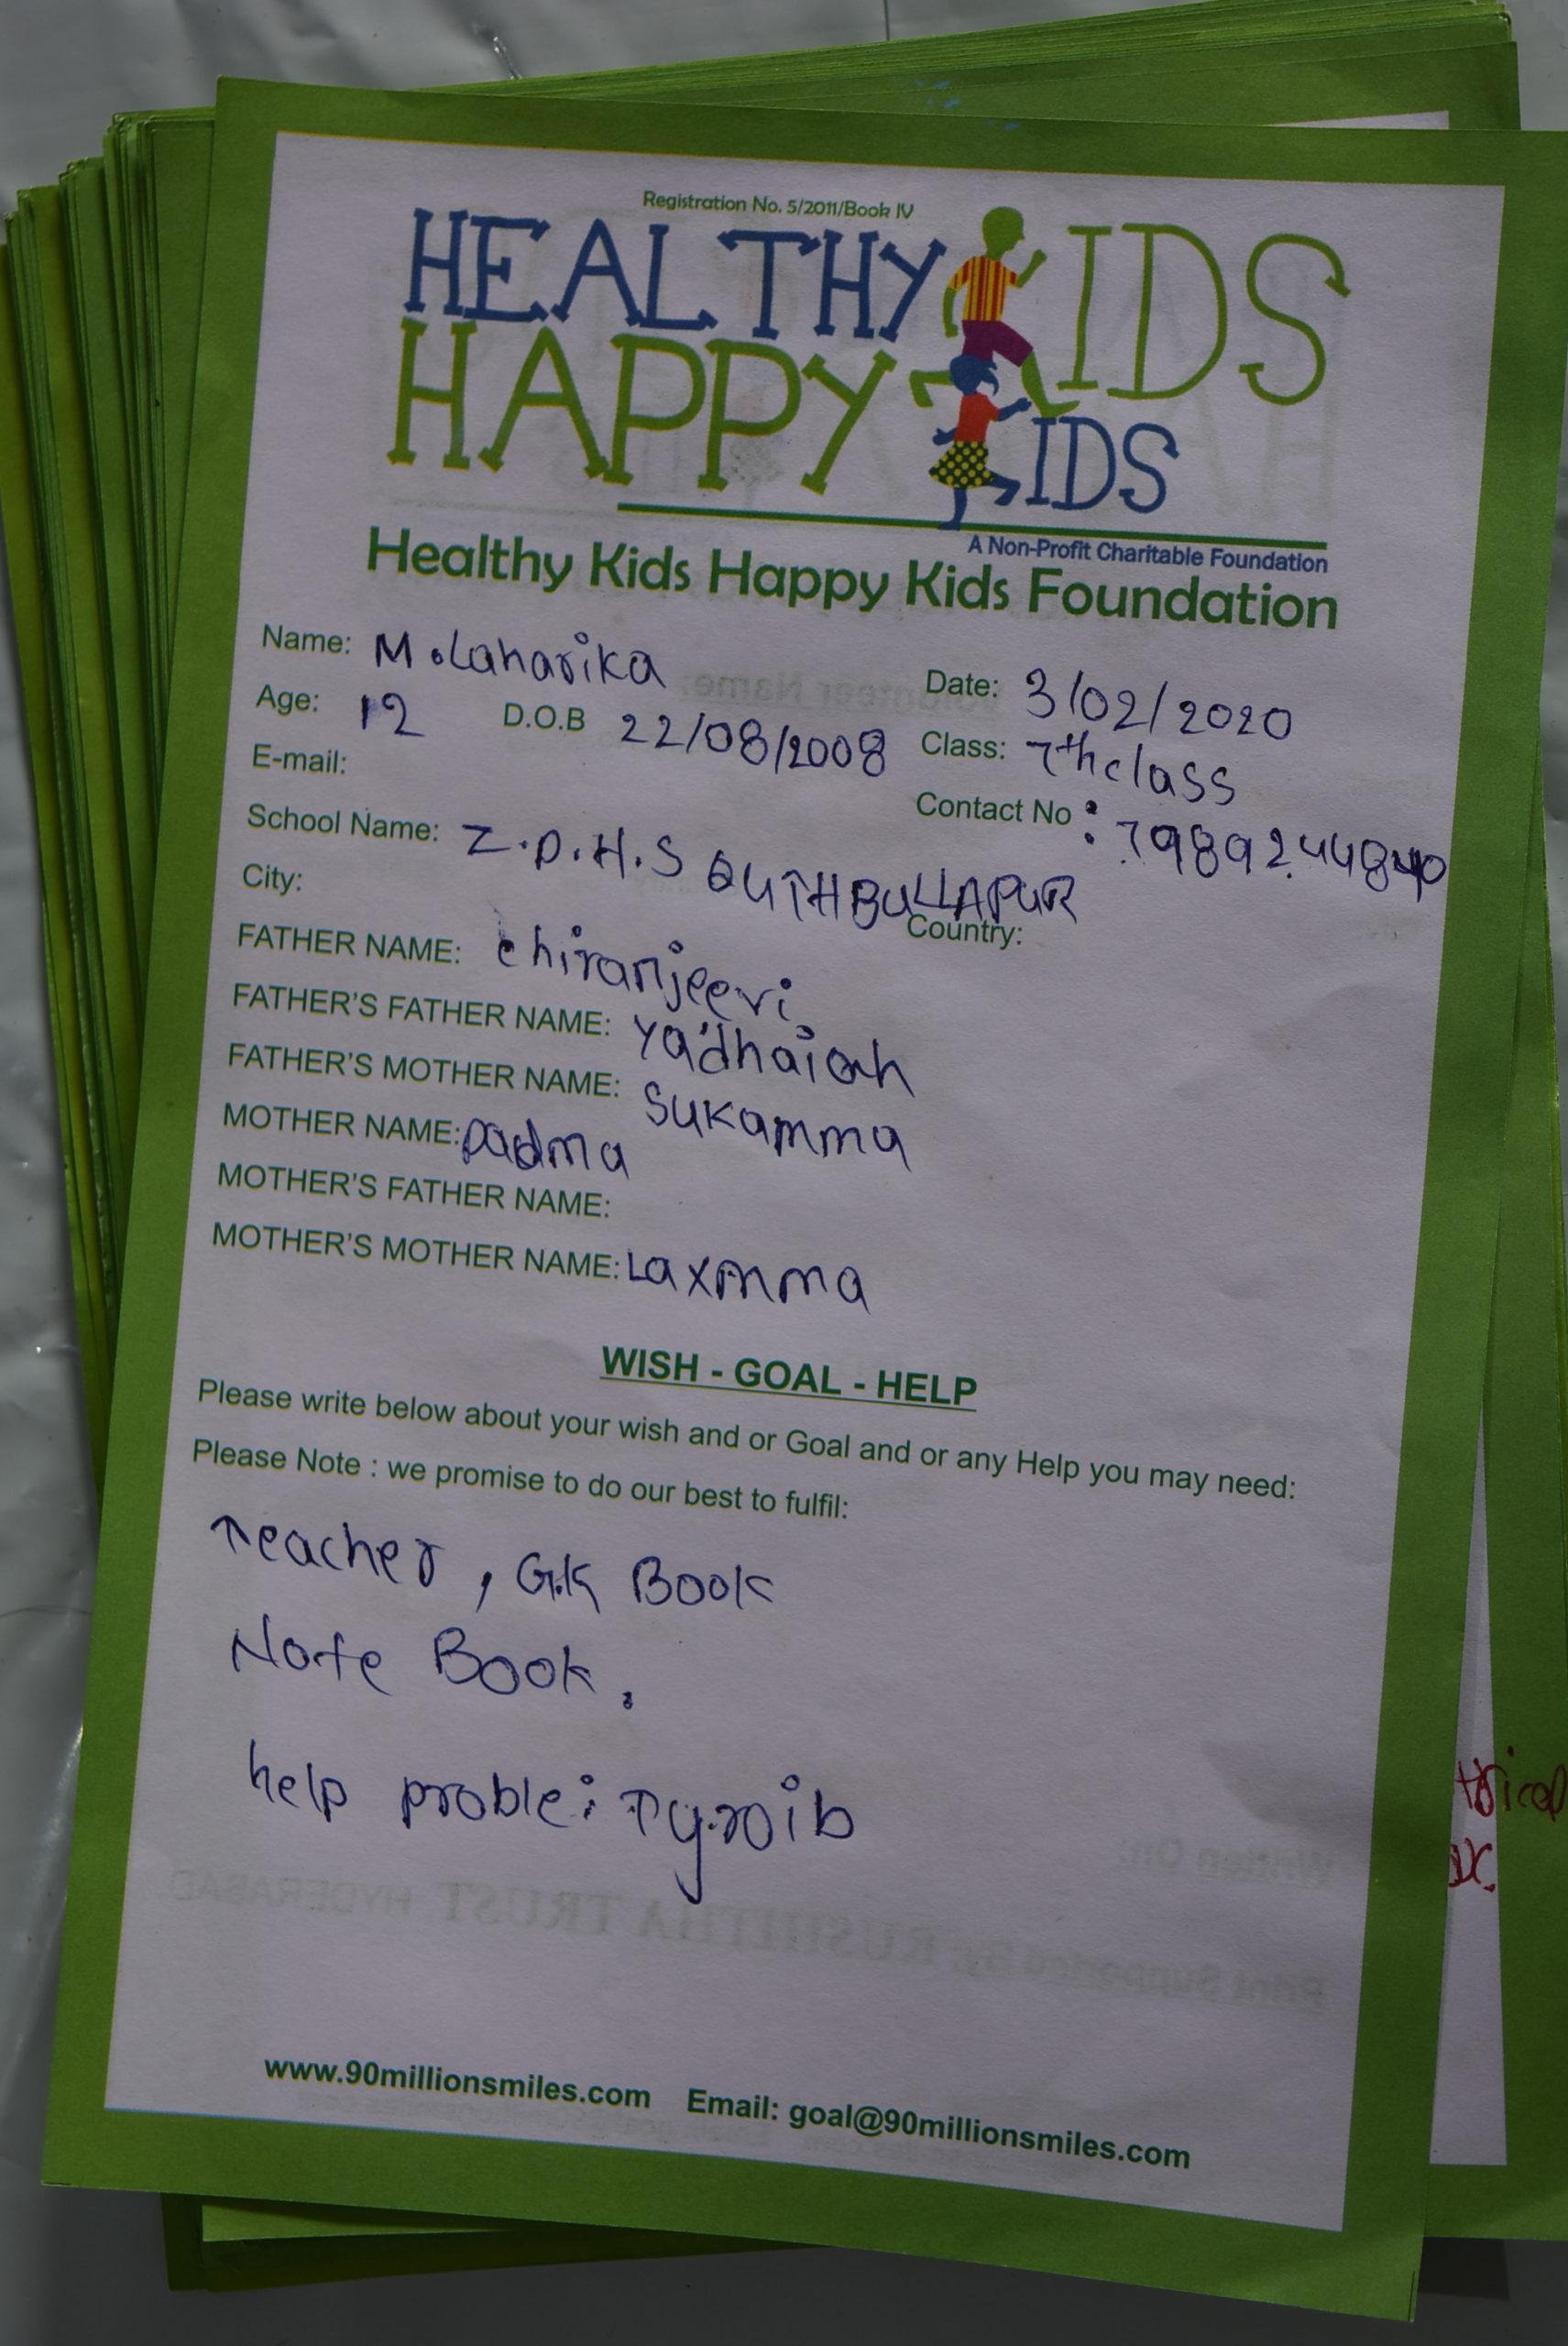 Registration No. 5/2011/Book IV
HEALTHY KIDS
HAPPY KIDS
A Non-Profit Charitable Foundation
Healthy Kids Happy Kids Foundation
Name: M.Laharika Date: 3/02/2020
Age: 12 D.O.B 22/08/2008 Class: 7th class
E-mail: Contact No : 7989244840
School Name: Z.P.H.S QUTHBULLAPUR
City: Country:
FATHER NAME: chiranjeevi
FATHER'S FATHER NAME: Yadhaiah
FATHER'S MOTHER NAME: Sukamma
MOTHER NAME: padma
MOTHER'S FATHER NAME:
MOTHER'S MOTHER NAME: Laxmma
WISH - GOAL - HELP
Please write below about your wish and or Goal and or any Help you may need:
Please Note : we promise to do our best to fulfil:
Teacher, G.K Book
Note Book.
help proble: Tyroib
www.90millionsmiles.com Email: goal@90millionsmiles.com